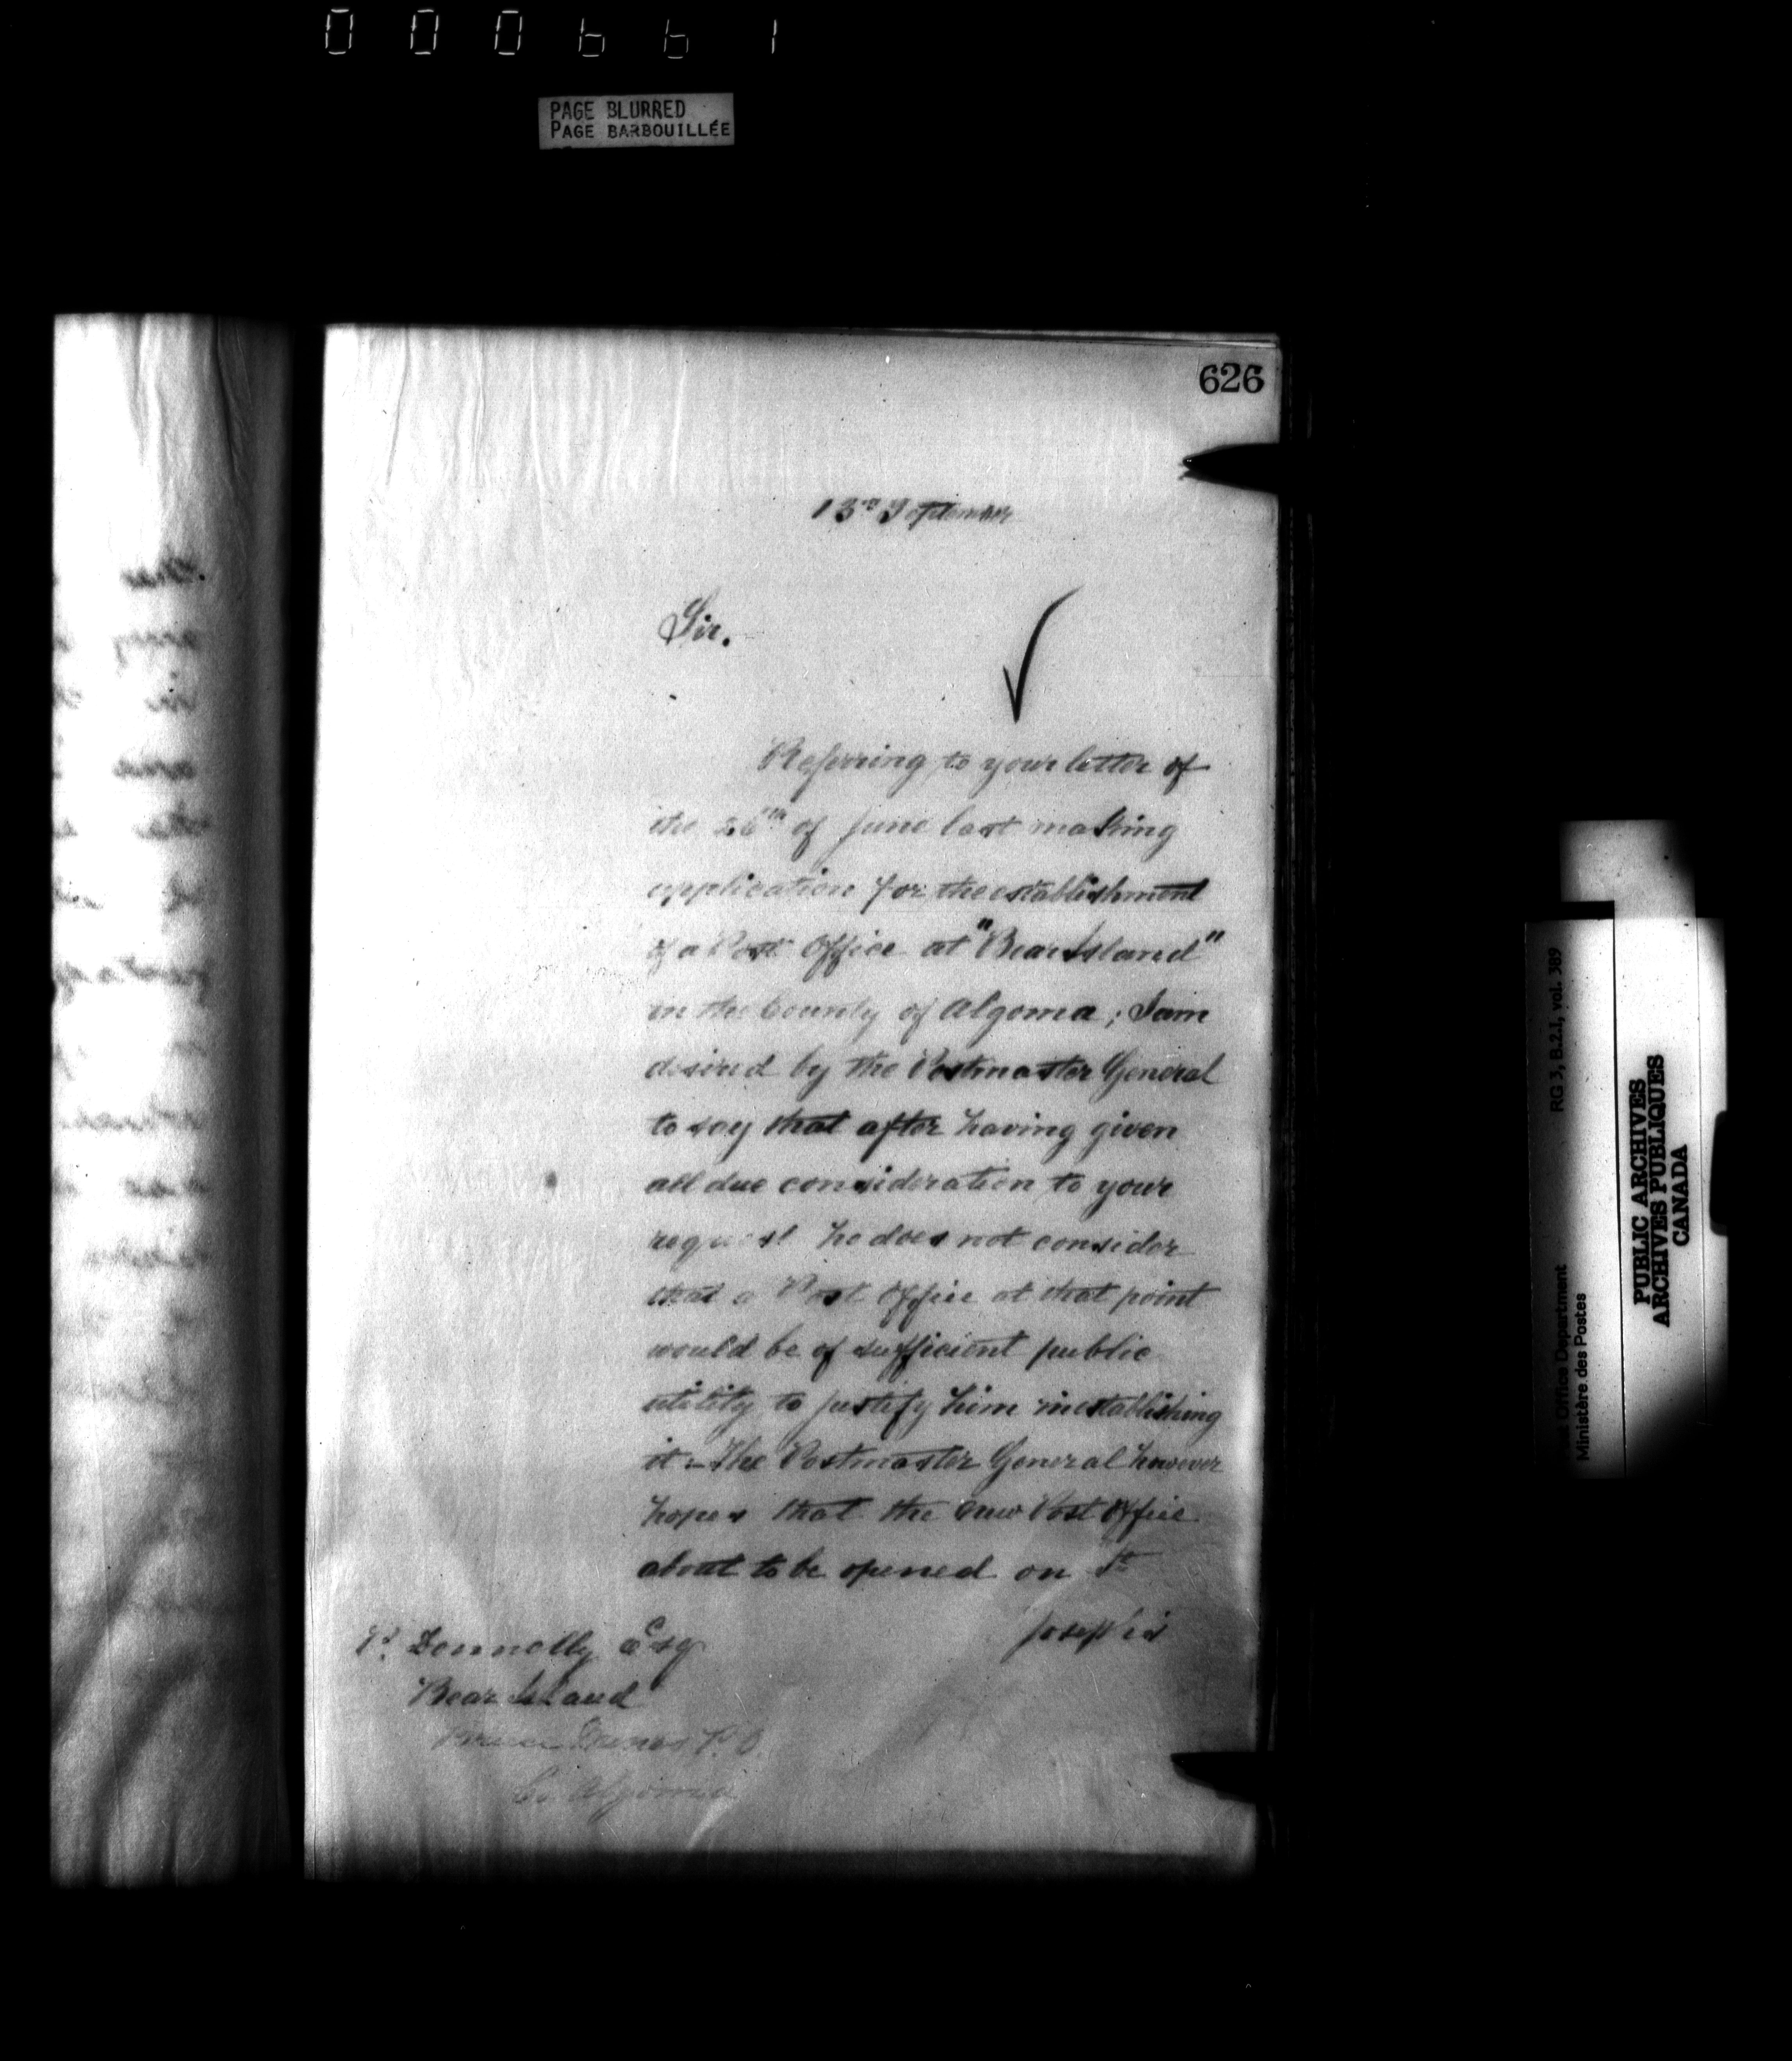 000661
PAGE BLURRED
PAGE BARBOUILLÉE
626
13rd September
Sir.
Referring to your letter of
the 26th of June last making
application for the establishment
of a Post Office at "Bear Island"
in the County of Algoma; I am
desired by the Postmaster General
to say that after having given
all due consideration to your
request he does not consider
that a Post Office at that point
would be of sufficient public
utility to justify him in establishing
it. - The Postmaster General however
hopes that the new Post Office
about to be opened on St
Joseph is
P. Donnolly Esq
Bear Island
Bruce Mines P.O.
Co. Algoma
RG 3, B.2.1, vol. 389
Office Department
Ministère des Postes
PUBLIC ARCHIVES
ARCHIVES PUBLIQUES
CANADA